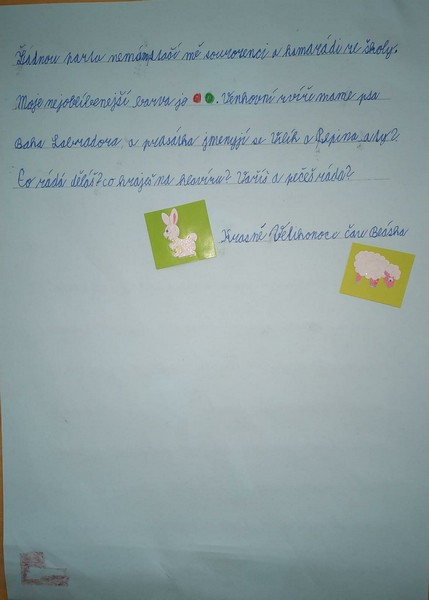 Žádnou partu nemám stačí mě sourozenci a kamarádi ze školy.
Moje nejoblíbenější barva je . Venkovní zvíře máme psa
Baha Labradora a prasátka jmenují se Vilík a Pepina a ty?
Co rádá děláš? co hraješ na klavíru? Vaříš a pečeš ráda?
Krásné Velikonoce čau Beáska